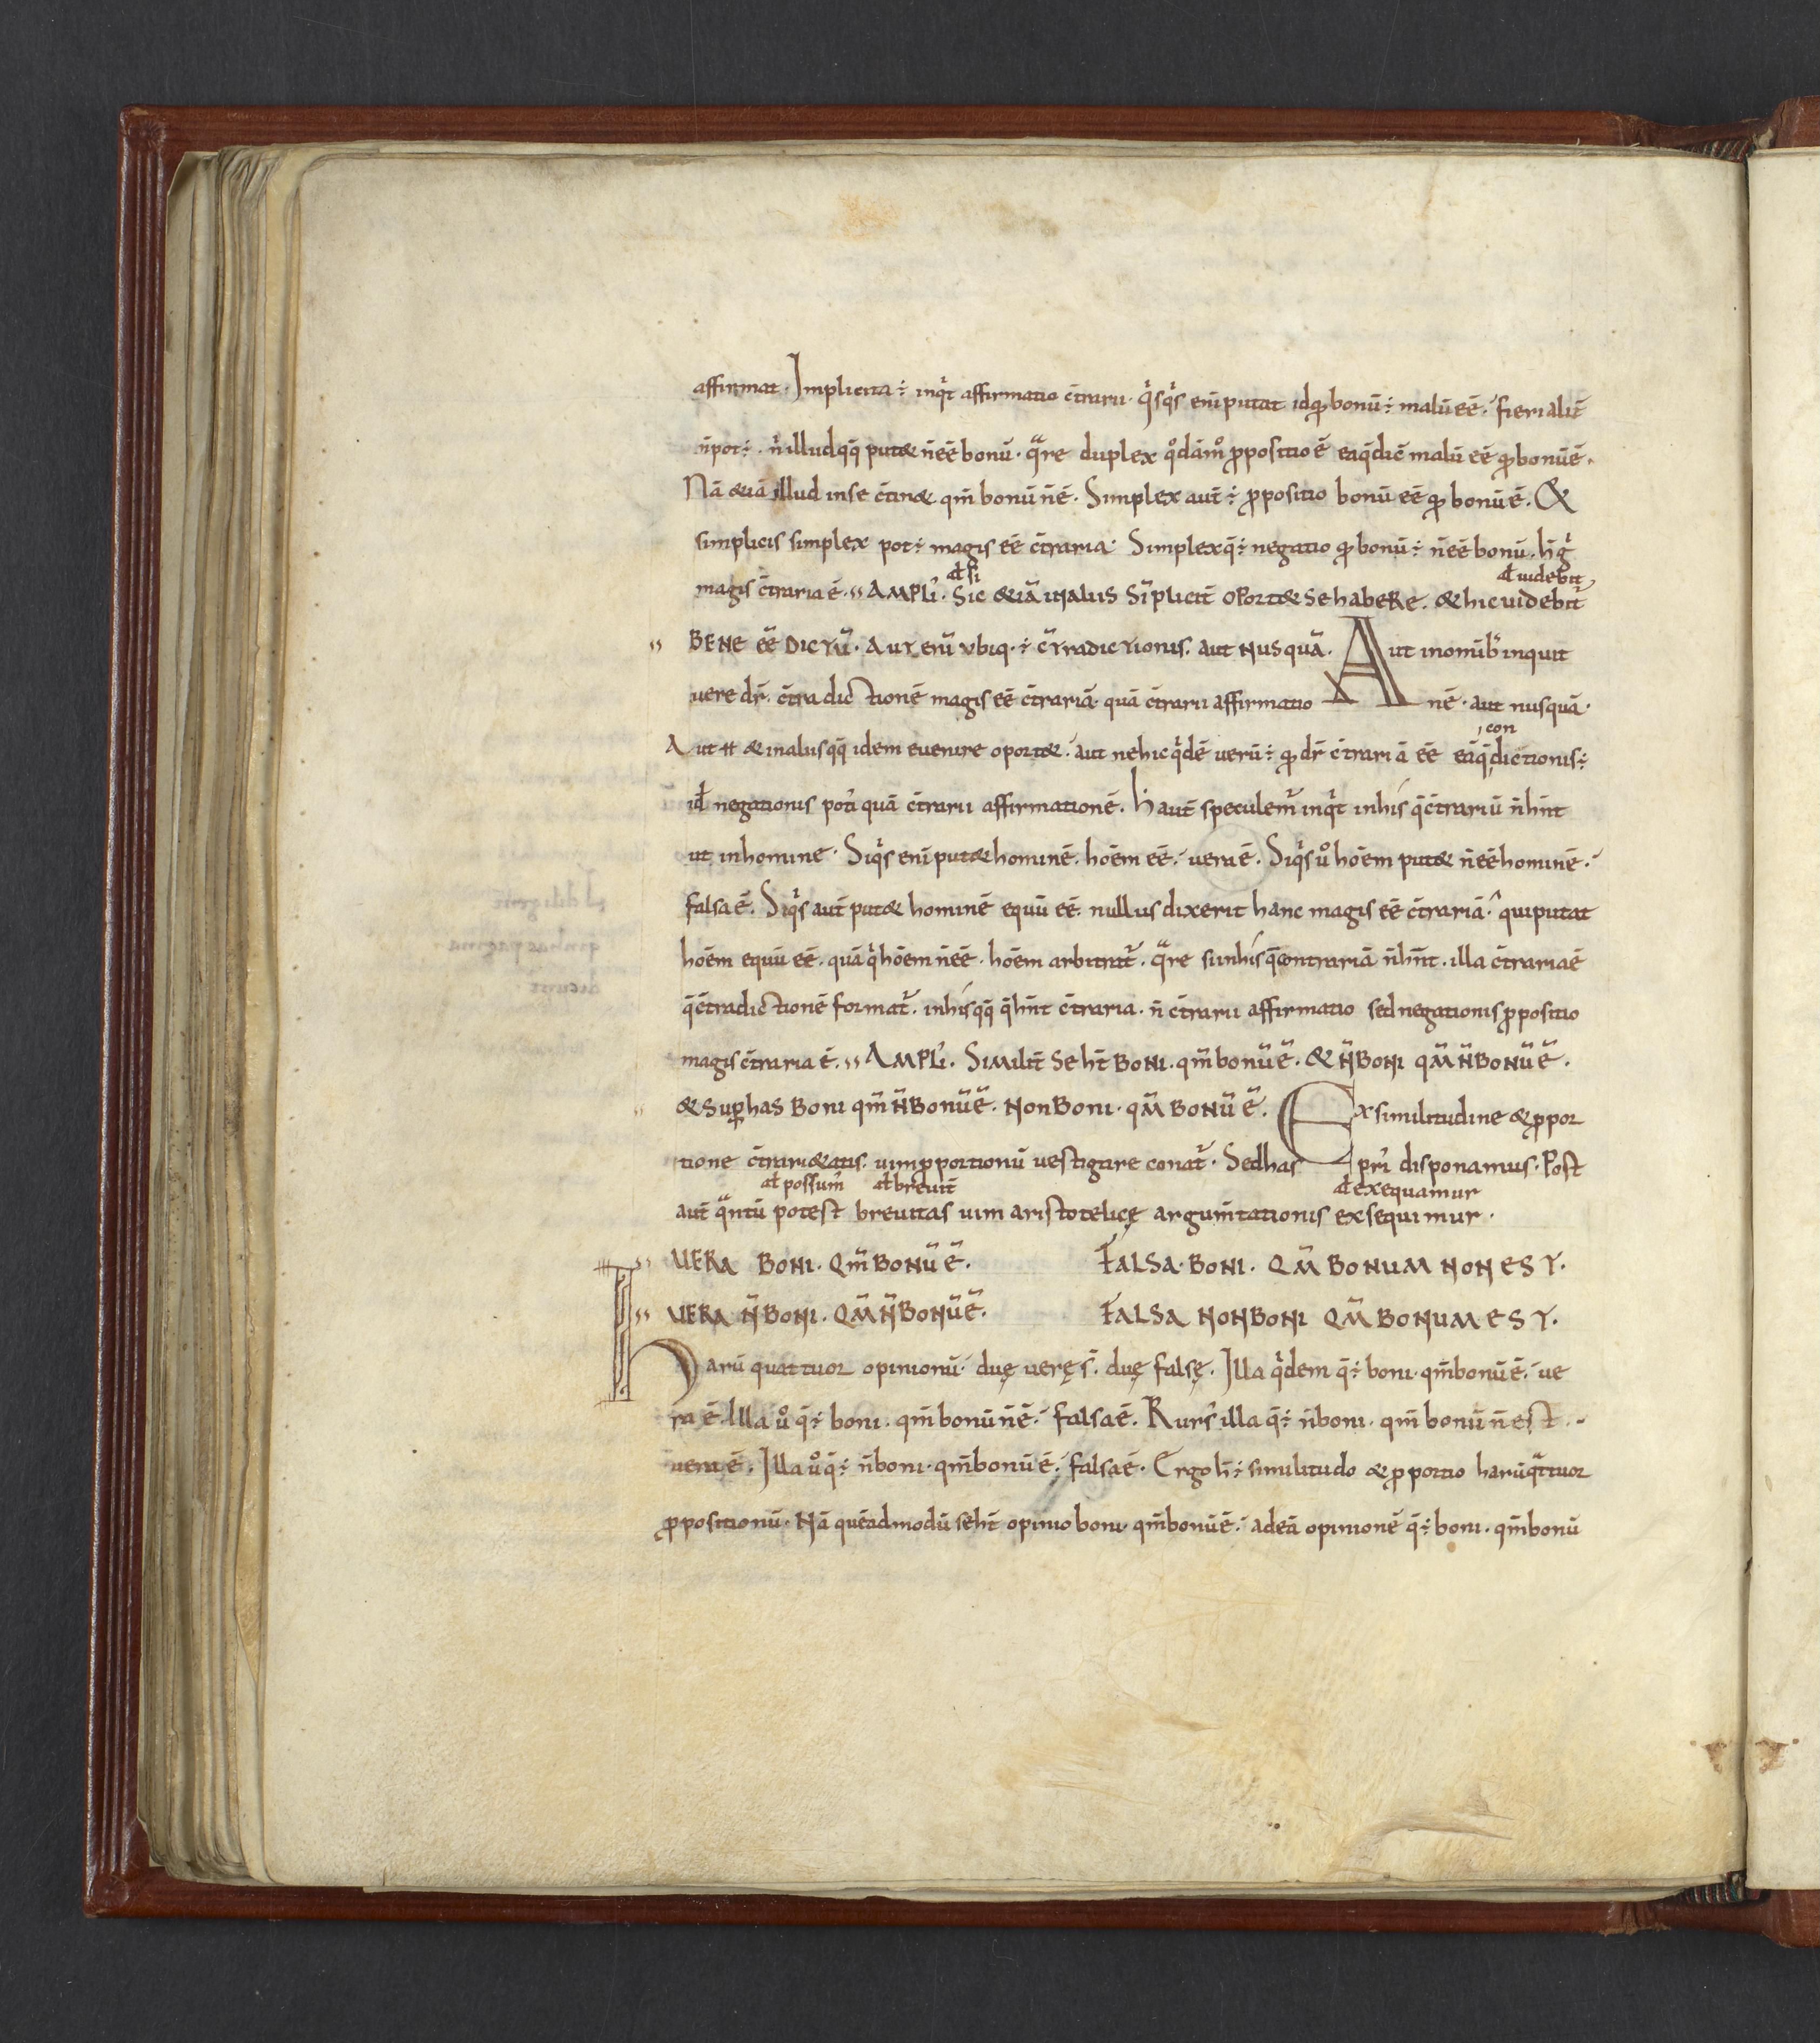 affirmat. Implicita ÷ inqͥt affirmatio c̄trarii. qͥsqͥs eni̅ putat id qđ bonū ÷ malū eē. fieri alit̄
n̄ pot÷. n̄ illud qq̄ put& n̄ eē bonū. qͣre duplex qͦdāmͦ ꝓpositio ē eaq̄ dic̄ malū eē qđ bonū ē.
Nā &iā illud inse c̄tin& qm̄ bonū n̄ ē. Simplex aut̄ ÷ ꝓpositio bonū eē qđ bonū ē. &
simplicis simplex pot÷ magis eē c̄traria. Simplex q̄ ÷ negatio qđ bonū ÷ n̄ eē bonū. h̄ gͥ
ałsi ał uidebit
magis c̄traria ē. AMPLI'. Sic &iā in alus Siplicit̄ OPort& Se habeRe. & hic uidebit᷑
BENE eē DICTū. AUT eni̅ ubiq. ÷ c̄TradicTionis. aut Nusquā. Aut in omib' inquit
uere dr̄. c̄tradictionē magis eē c̄trariā. quā c̄trarii affirmatio nē. aut nusquā.
con
Aut ħ & in alus qq̄ idem euenire oport&. aut ne hic qͥdē uerū ÷ qđ dr̄ c̄trariā eē eāq̄ dictionis ÷
id ł negationis poti' quā c̄trarii affirmationē. h' aut̄ speculem᷑ inqͥt in his q̄ c̄trariū n̄ hn̄t
ut in homine. Siqͥs eni̅ put& hominē. hoēm eē. uera ē. Siqͥs uͦ hoēm put& n̄ eē hominē.
falsa ē. Siqͥs aut̄ put& hominē equū eē. nullus dixerit hanc magis eē c̄trariā. qui putat
hoēm equū eē. quā qͥ hoēm n̄ eē. hoēm arbitrat᷑. qͣre si in his q̄ contrariā n̄ hn̄t. illa c̄traria ē
q̄ c̄tradictionē format᷑. in his qq̄ q̄ hn̄t c̄traria. n̄ c̄trarii affirmatio sed negationis ꝓpositio
magis c̄traria ē. AMPLI'. Similit̄ Se ht̄ BONI. qm̄ bonū ē. & N̄ BONI QM̄ N̄ BONū ē.
& Suꝑ has BONI qm̄ N̄ BONū ē. NON BONI. QM̄ BONū ē. Ex similitudine & ꝓpor
tione c̄trari&atis. uim ꝓportionū uestigare conat᷑. Sed has pri' disponamus. Post
ał possum' ał breuit̄ ał exequamur
aut̄ qͣntū potest breuitas uim aristotelicę argum̄tationis exsequimur.
UERA BONI. Qm̄ BONū ē. FALSA. BONI. QM̄ BONUM NON EST.
UERA N̄ BONI. QM̄ N̄ BONū ē. FALSA NON BONI QM̄ BONUM EST.
Harū quattuor opinionū. duę uerę s̄. duę falsę. Illa qͥdem q̄ ÷ boni. qm̄ bonū ē. ue
ra ē. Illa uͦ q̄ ÷ boni. qm̄ bonū n̄ ē. falsa ē. Rurs' illa q̄ ÷ n̄ boni. qm̄ bonū n̄ est.
uera ē. Illa uͦ q̄ ÷ n̄ boni. qm̄ bonū ē. falsa ē. Ergo h̄ ÷ similitudo & ꝓportio harū qͣttuor
ꝓpositionū. Nā quēadmodū se ht̄ opinio boni. qm̄ bonū ē. ad eā opinionē q̄ ÷ boni. qm̄ bonū